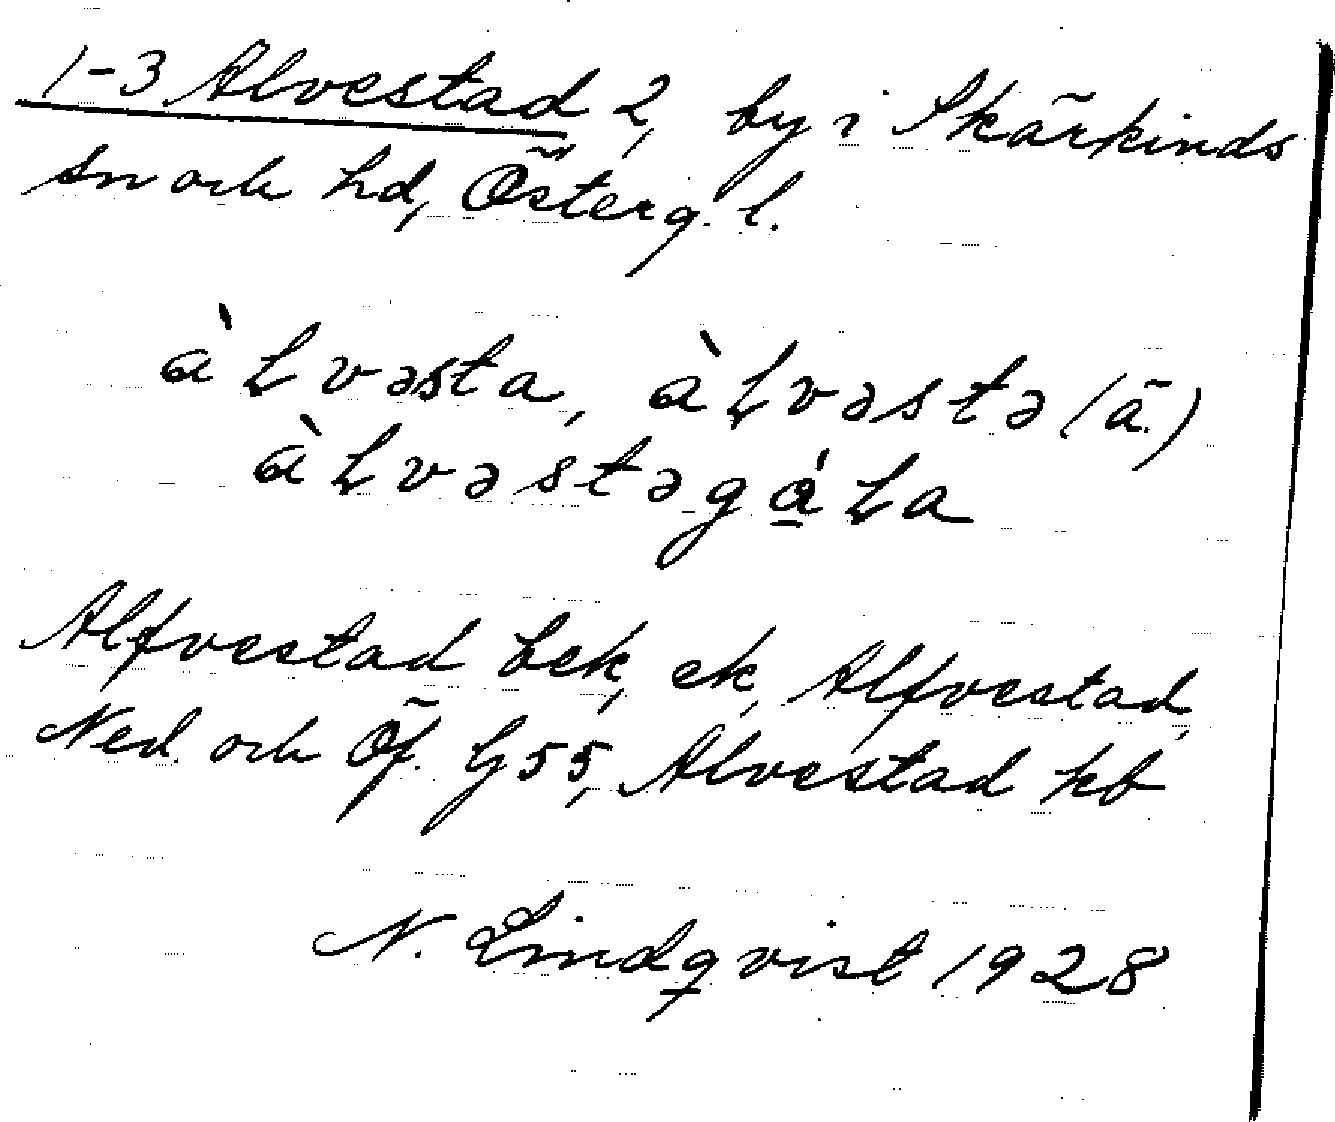 1-3 Alvestad 2, by i Skärkinds
sn och hd, Österg. l.
àⱢvəsta, àⱢvəstə (ā)
àⱢvəstəgáⱢa
Alfvestad bek, ek, Alfvestad,
Ned. och Öf. G55, Alvestad kb
N. Lindqvist 1928